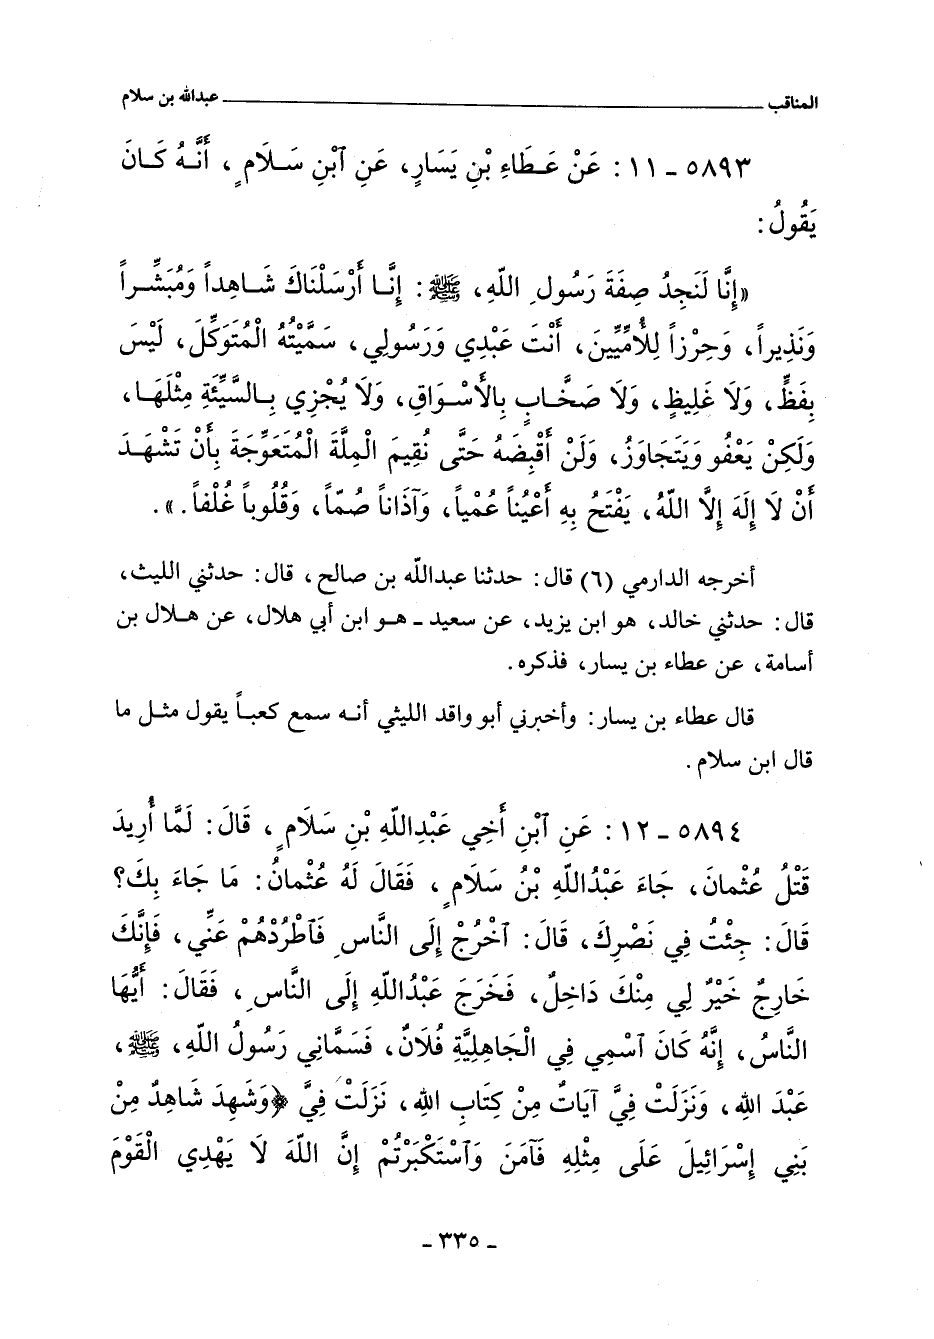 المناقب ــــــــــ عبدالله بن سلام
٥٨٩٣ ـ ١١ : عَنْ عَطَاءِ بْنِ يَسَارٍ، عَنِ ٱبْنِ سَلَامٍ، أَنَّهُ كَانَ
يَقُولُ:
«إِنَّا لَنَجِدُ صِفَةَ رَسُولِ اللّهِ، ﷺ: إِنَّا أَرْسَلْنَاكَ شَاهِداً وَمُبَشِّراً
وَنَذِيراً، وَحِرْزاً لِلْأُمِّيِّينَ، أَنْتَ عَبْدِي وَرَسُولِي، سَمَّيْتُهُ الْمُتَوَكِّلَ، لَيْسَ
بِفَظٍّ، وَلَا غَلِيظٍ، وَلَا صَخَّابٍ بِالْأَسْوَاقِ، وَلَا يُجْزِي بِالسَّيِّئَةِ مِثْلَهَا،
وَلَكِنْ يَعْفُو وَيَتَجَاوَزُ، وَلَنْ أَقْبِضَهُ حَتَّى نُقِيمَ الْمِلَّةَ الْمُتَعَوِّجَةَ بِأَنْ تَشْهَدَ
أَنْ لَا إِلَهَ إِلَّا اللّهُ، يَفْتَحُ بِهِ أَعْيُناً عُمْياً، وَآذَاناً صُمّاً، وَقُلُوباً غُلْفاً.».
أخرجه الدارمي (٦) قال: حدثنا عبدالله بن صالح، قال: حدثني الليث،
قال: حدثني خالد، هو ابن يزيد، عن سعيد ـ هو ابن أبي هلال، عن هلال بن
أسامة، عن عطاء بن يسار، فذكره.
قال عطاء بن يسار: وأخبرني أبو واقد الليثي أنه سمع كعباً يقول مثل ما
قال ابن سلام.
٥٨٩٤ ـ ١٢ : عَنِ ٱبْنِ أَخِي عَبْدِاللّهِ بْنِ سَلَامٍ، قَالَ: لَمَّا أُرِيدَ
قَتْلُ عُثْمانَ، جَاءَ عَبْدُاللّهِ بْنُ سَلَامٍ، فَقَالَ لَهُ عُثْمانُ: مَا جَاءَ بِكَ؟
قَالَ: جِئْتُ فِي نَصْرِكَ، قَالَ: ٱخْرُجْ إِلَى النَّاسِ فَٱطْرُدْهُمْ عَنِّي، فَإِنَّكَ
خَارِجٌ خَيْرٌ لِي مِنْكَ دَاخِلٌ، فَخَرَجَ عَبْدُاللّهِ إِلَى النَّاسِ، فَقَالَ: أَيُّهَا
النَّاسُ، إِنَّهُ كَانَ ٱسْمِي فِي الْجَاهِلِيَّةِ فُلَانٌ، فَسَمَّانِي رَسُولُ اللّهِ، ﷺ،
عَبْدَ اللهِ، وَنَزَلَتْ فِيَّ آيَاتٌ مِنْ كِتَابِ اللهِ، نَزَلَتْ فِيَّ ﴿وَشَهِدَ شَاهِدٌ مِنْ
بَنِي إِسْرَائِيلَ عَلَى مِثْلِهِ فَآمَنَ وَٱسْتَكْبَرْتُمْ إِنَّ اللهَ لَا يَهْدِي الْقَوْمَ
ـ ٣٣٥ ـ